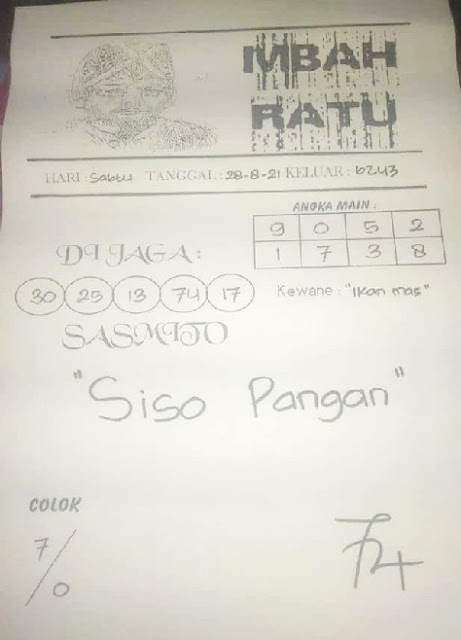 MBAH
RATU
HARI : Sabtu TANGGAL : 28-8-21 KELUAR : 6243
ANGKA MAIN :
9 0 5 2
1 7 3 8
DI JAGA :
30 25 13 74 17
Kewane : "Ikan mas"
SASMITO
"Siso Pangan"
COLOK
7/0